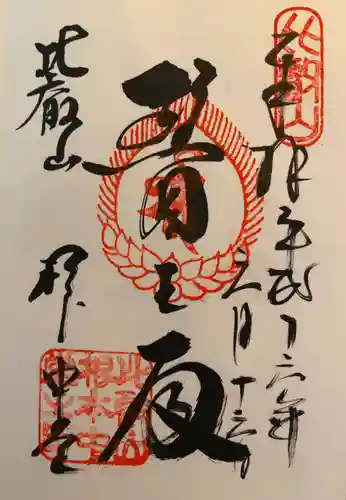 奉拝 平成二十六年
月十三日
醫王殿
比叡山
根本中堂
比叡山
比叡山
根本中堂